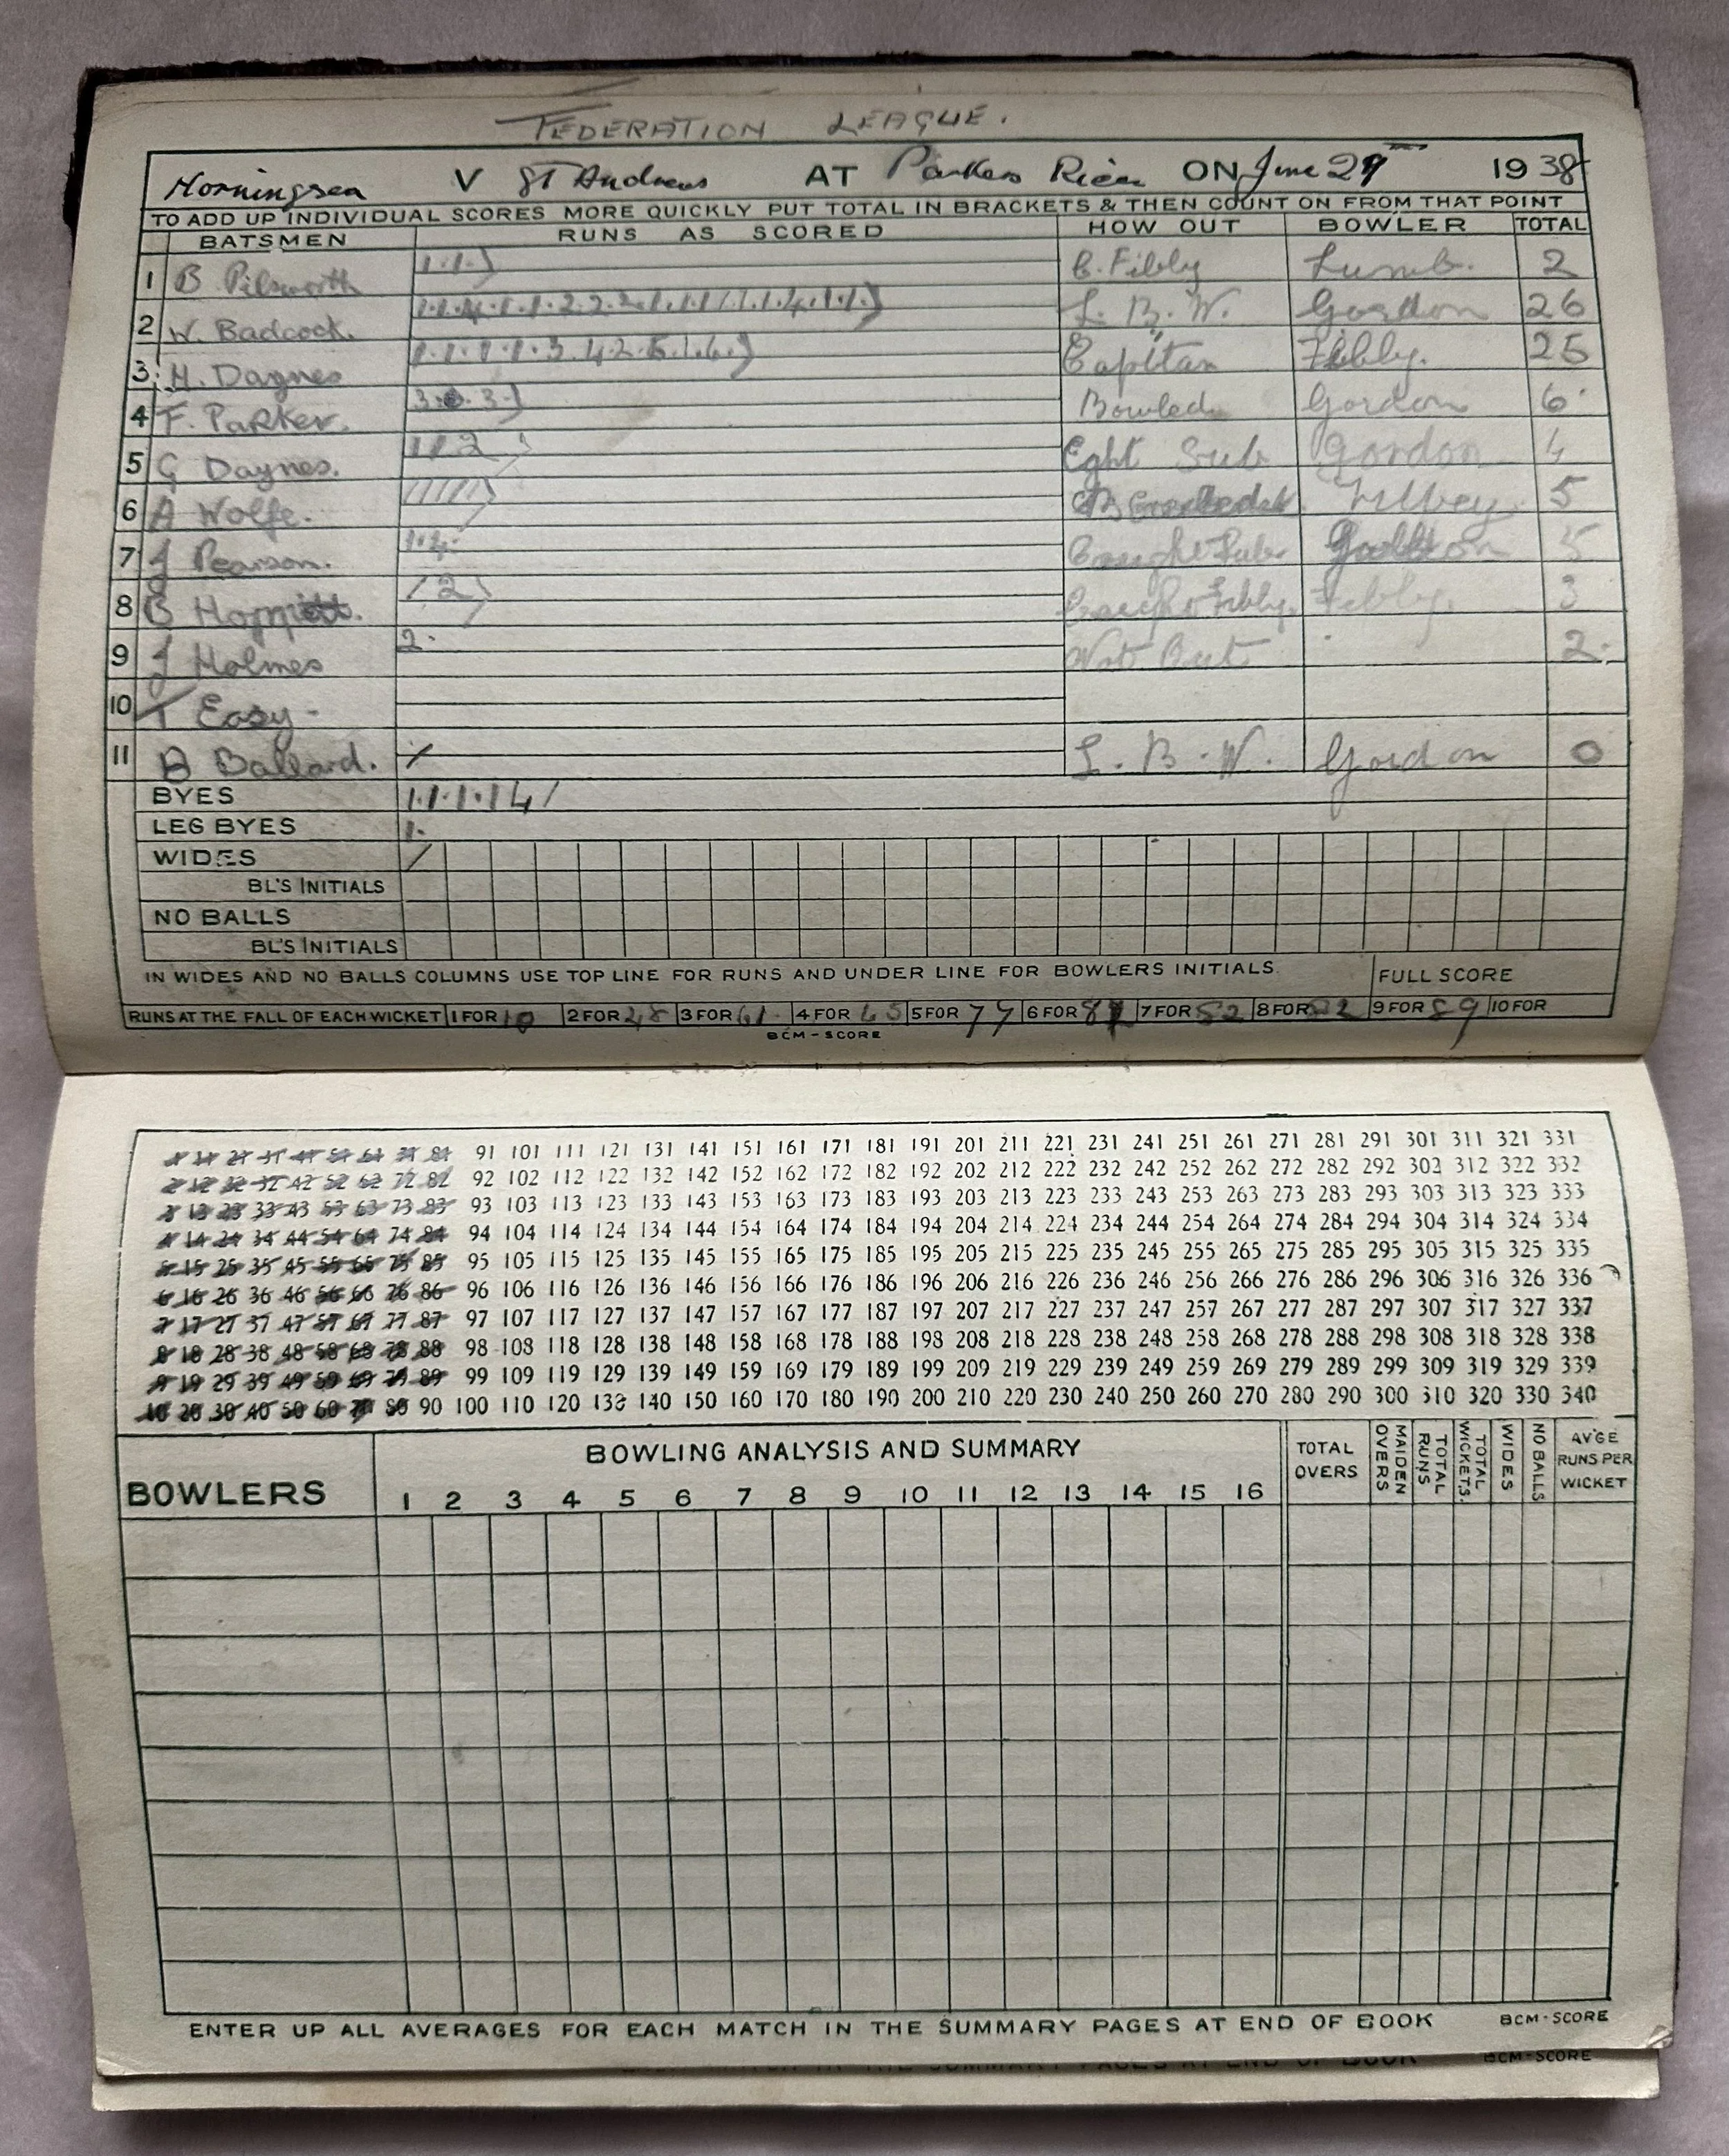 FEDERATION LEAGUE.
Morningsea V ST Andrews AT Parkers Ricen ON June 29 1938
TO ADD UP INDIVIDUAL SCORES MORE QUICKLY PUT TOTAL IN BRACKETS & THEN COUNT ON FROM THAT POINT
BATSMEN RUNS AS SCORED HOW OUT BOWLER TOTAL
1 B Pilsworth 1.1.) C. Fibby Lumb. 2
2 W. Badcock. L. B. W. Gordon 26
3 H. Daynes 1.1.1.1.3.4.2.5.1.6.) Capitan Fibby. 25
4 F. Parker. 3. 3.) Bowled Gordon 6
5 G Daynes. 1 1 2 Sub Gordon 4
6 A Wolfe. 1 1 1 1 1) 5
7 J Pearson. 1.4. Caught 5
8 B / 2) Caught Fibby. Fibby. 3
9 J Holmes 2. Not Out 2.
10 T Easy -
11 B Ballard. / L. B. W. Gordon 0
BYES 1.1.1.1 4 /
LEG BYES 1.
WIDES /
BL'S INITIALS
NO BALLS
BL'S INITIALS
IN WIDES AND NO BALLS COLUMNS USE TOP LINE FOR RUNS AND UNDER LINE FOR BOWLERS INITIALS. FULL SCORE
RUNS AT THE FALL OF EACH WICKET 1 FOR 10 2 FOR 48 3 FOR 61 4 FOR 65 5 FOR 74 6 FOR 7 FOR 82 8 FOR 82 9 FOR 89 10 FOR
BCM-SCORE
1 11 21 31 41 51 61 71 81 91 101 111 121 131 141 151 161 171 181 191 201 211 221 231 241 251 261 271 281 291 301 311 321 331
2 12 22 32 42 52 62 72 82 92 102 112 122 132 142 152 162 172 182 192 202 212 222 232 242 252 262 272 282 292 302 312 322 332
3 13 23 33 43 53 63 73 83 93 103 113 123 133 143 153 163 173 183 193 203 213 223 233 243 253 263 273 283 293 303 313 323 333
4 14 24 34 44 54 64 74 84 94 104 114 124 134 144 154 164 174 184 194 204 214 224 234 244 254 264 274 284 294 304 314 324 334
5 15 25 35 45 55 65 75 85 95 105 115 125 135 145 155 165 175 185 195 205 215 225 235 245 255 265 275 285 295 305 315 325 335
6 16 26 36 46 56 66 76 86 96 106 116 126 136 146 156 166 176 186 196 206 216 226 236 246 256 266 276 286 296 306 316 326 336
7 17 27 37 47 57 67 77 87 97 107 117 127 137 147 157 167 177 187 197 207 217 227 237 247 257 267 277 287 297 307 317 327 337
8 18 28 38 48 58 68 78 88 98 108 118 128 138 148 158 168 178 188 198 208 218 228 238 248 258 268 278 288 298 308 318 328 338
9 19 29 39 49 59 69 79 89 99 109 119 129 139 149 159 169 179 189 199 209 219 229 239 249 259 269 279 289 299 309 319 329 339
10 20 30 40 50 60 70 80 90 100 110 120 130 140 150 160 170 180 190 200 210 220 230 240 250 260 270 280 290 300 310 320 330 340
BOWLERS BOWLING ANALYSIS AND SUMMARY TOTAL OVERS MAIDEN OVERS TOTAL RUNS TOTAL WICKETS. WIDES NO BALLS AV'GE RUNS PER WICKET
1 2 3 4 5 6 7 8 9 10 11 12 13 14 15 16
ENTER UP ALL AVERAGES FOR EACH MATCH IN THE SUMMARY PAGES AT END OF BOOK BCM-SCORE
BCM-SCORE